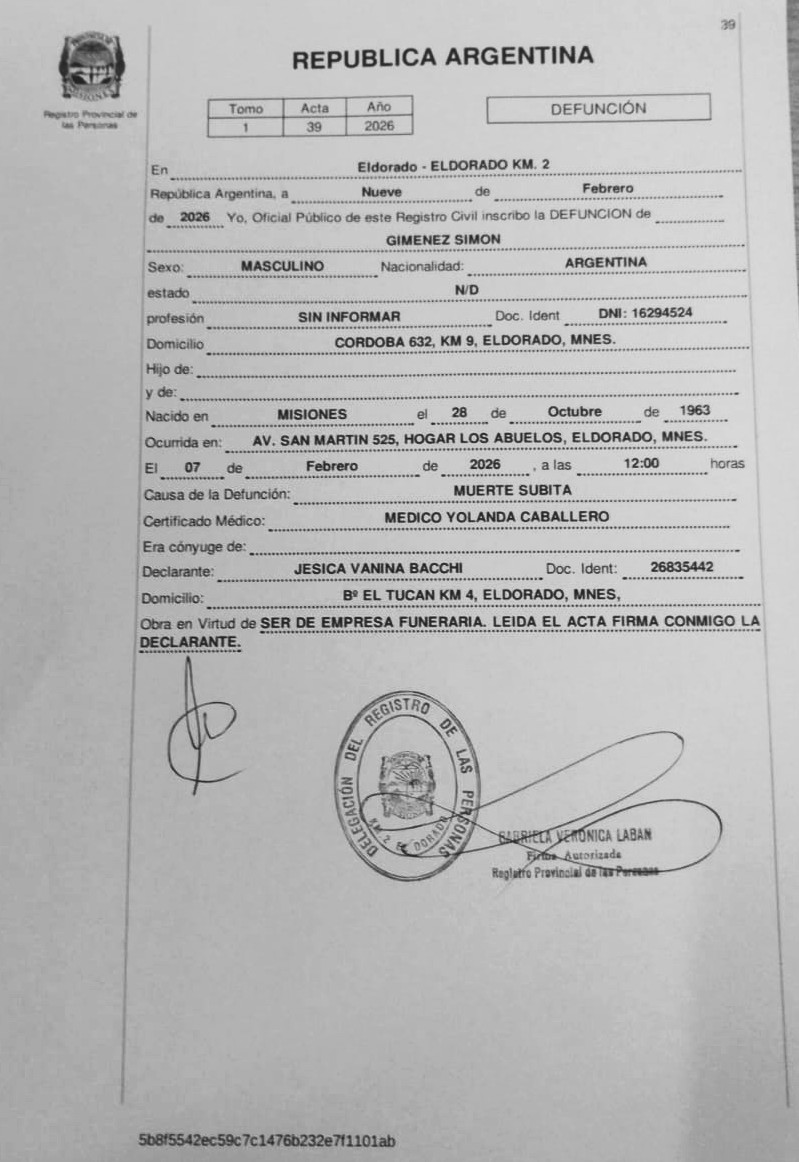 39
Registro Provincial de
las Personas
REPUBLICA ARGENTINA
Tomo Acta Año
1 39 2026
DEFUNCIÓN
En Eldorado - ELDORADO KM. 2
República Argentina, a Nueve de Febrero
de 2026 Yo, Oficial Público de este Registro Civil inscribo la DEFUNCION de
GIMENEZ SIMON
Sexo: MASCULINO Nacionalidad: ARGENTINA
estado N/D
profesión SIN INFORMAR Doc. Ident DNI: 16294524
Domicilio CORDOBA 632, KM 9, ELDORADO, MNES.
Hijo de:
y de:
Nacido en MISIONES el 28 de Octubre de 1963
Ocurrida en: AV. SAN MARTIN 525, HOGAR LOS ABUELOS, ELDORADO, MNES.
El 07 de Febrero de 2026, a las 12:00 horas
Causa de la Defunción: MUERTE SUBITA
Certificado Médico: MEDICO YOLANDA CABALLERO
Era cónyuge de:
Declarante: JESICA VANINA BACCHI Doc. Ident: 26835442
Domicilio: Bº EL TUCAN KM 4, ELDORADO, MNES,
Obra en Virtud de SER DE EMPRESA FUNERARIA. LEIDA EL ACTA FIRMA CONMIGO LA
DECLARANTE.
DELEGACIÓN DEL REGISTRO DE LAS PERSONAS
KM. 2 ELDORADO
GABRIELA VERONICA LABAN
Firma Autorizada
Registro Provincial de las Personas
5b8f5542ec59c7c1476b232e7f1101ab